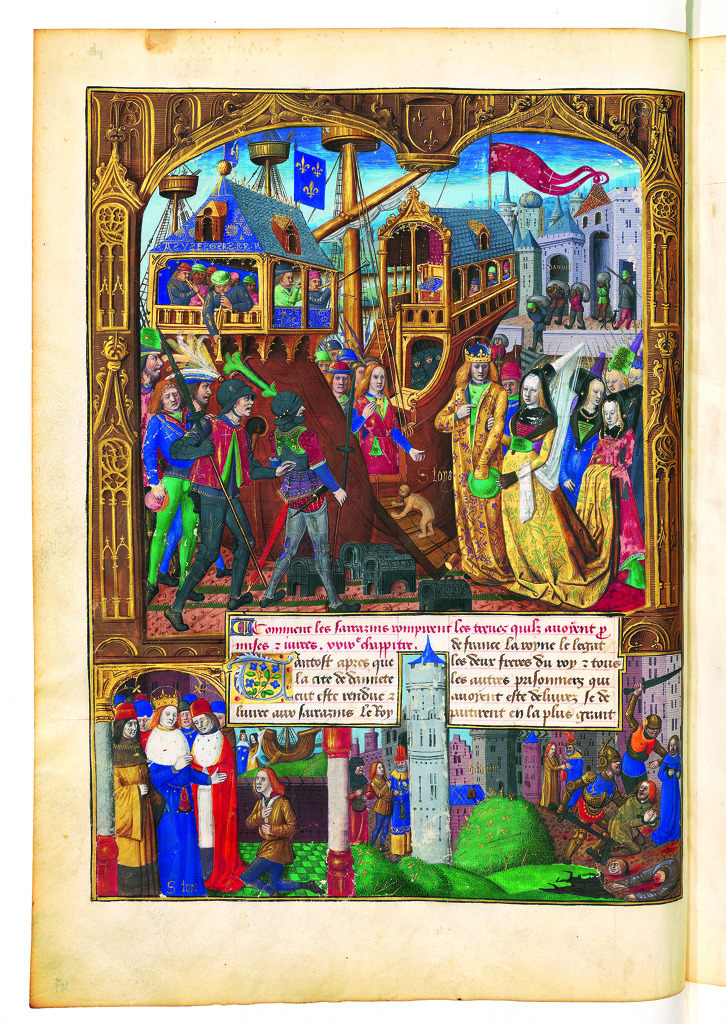 S loys
Comment les sarrazins rompirent les treues quilz auoient p
mises ⁊ iurees . chappitre .
Tantost apres que
la cite de damiete
eut este rendue ⁊
liuree aux sarazins le Roy
de france la royne le legat
les deux freres du roy ⁊ tous
les autres prisonniers qui
auoyent este deliurez se de
partirent en la plus grant
S loys